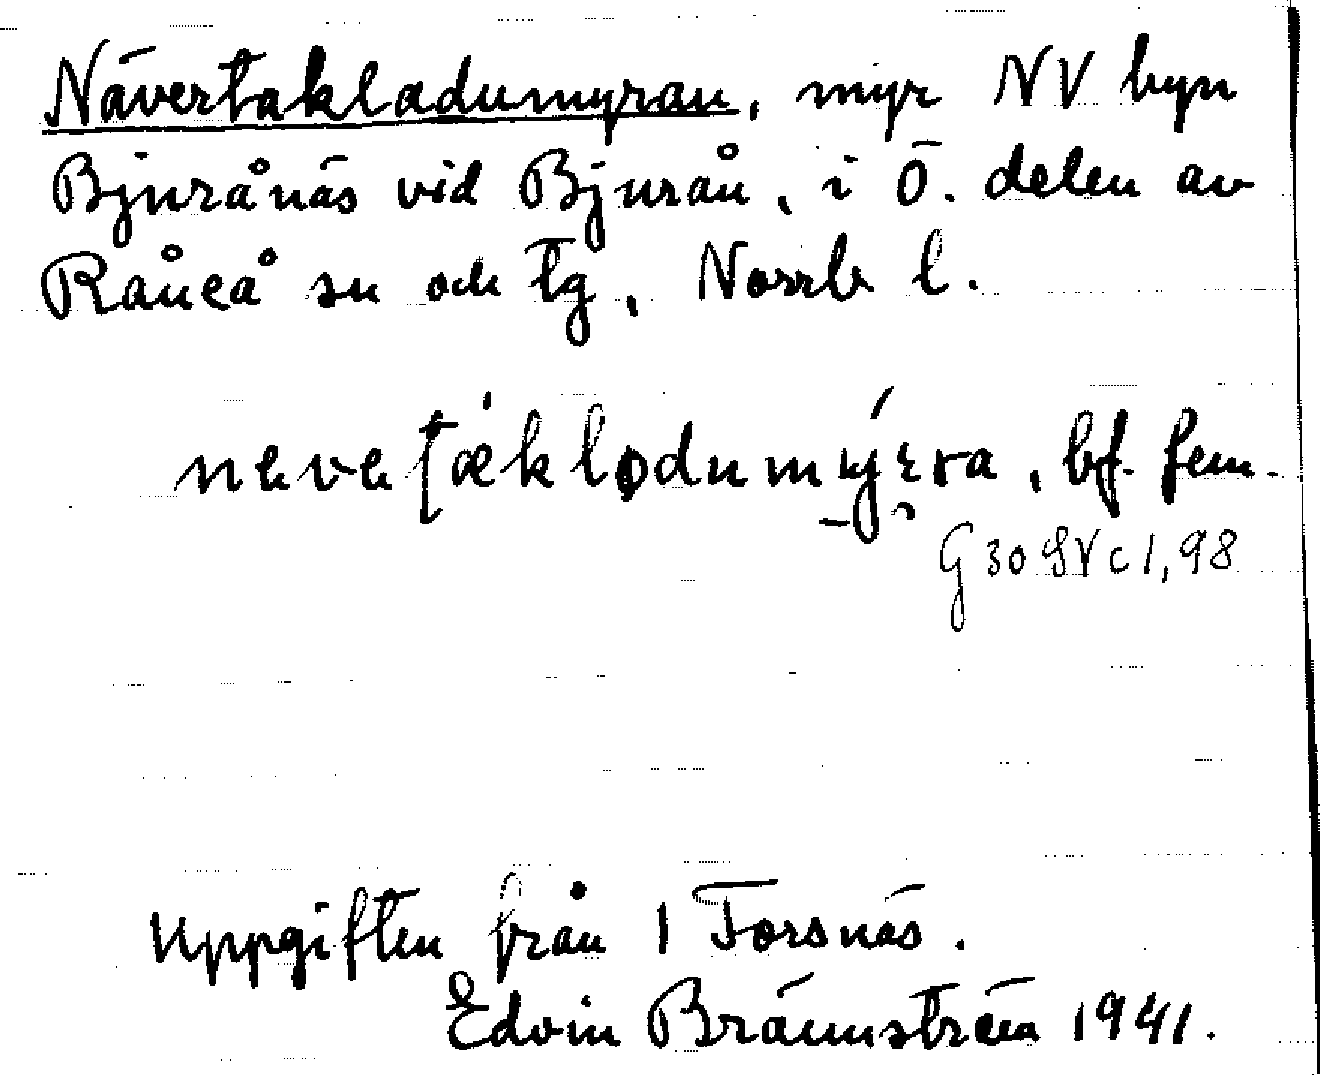 Nävertakladumyran, myr NV byn
Bjurånäs vid Bjurån, i Ö. delen av
Råneå sn och tg, Norrb l.
bf. fem.
G 30 SV c 1, 98
Uppgiften från 1 Forsnäs.
Edvin Brännström 1941.